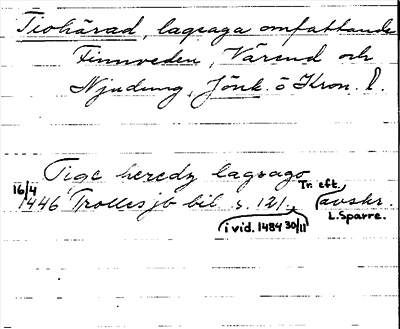 Tiohärad, lagsaga omfattande
Finnveden, Värend och
Njudung, Jönk. o Kron. l.
Tige heredz lagsago
16/4 1446 Trolles jb bil s. 121. Tr. eft. avskr.
i vid. 1484 30/11 L. Sparre.